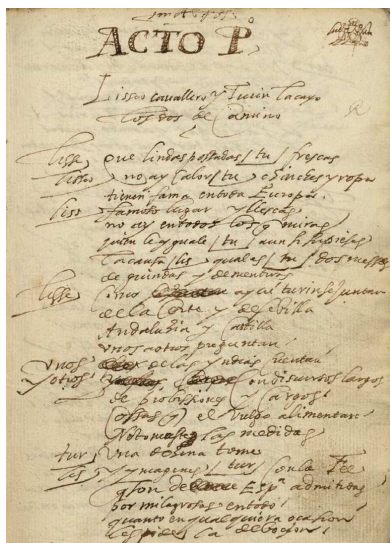 ACTO Pº
Lisseo cavallero y Turin lacayo
los dos de camino
lisse que lindas possadas / tu / frescas
lisseo no ay calor / tu / chinches y ropa
tienen fama en toda Europa.
liss famoso lugar yllescas
no ay en todos los q miras
quien le yguale / tu / aun si supieses
la causa / lis / qual es / tu / dos meses
de guindas y de mentiras
lisse Como aqui turin se juntan
de la Corte y de Sevilla
Andaluçia y Castilla
unos a otros preguntan
unos de las yndias quentan
y otros Con discursos largos
de probissiones y cargos
Cossas q el vulgo alimentan
No tomaste las medidas
tur Una doçena tome
lis y ymagenes / tur / con la Fee
q son de Espª admitidas
por milagrosas en todo
quanto en qualquiera ocasion
les pide la devocion